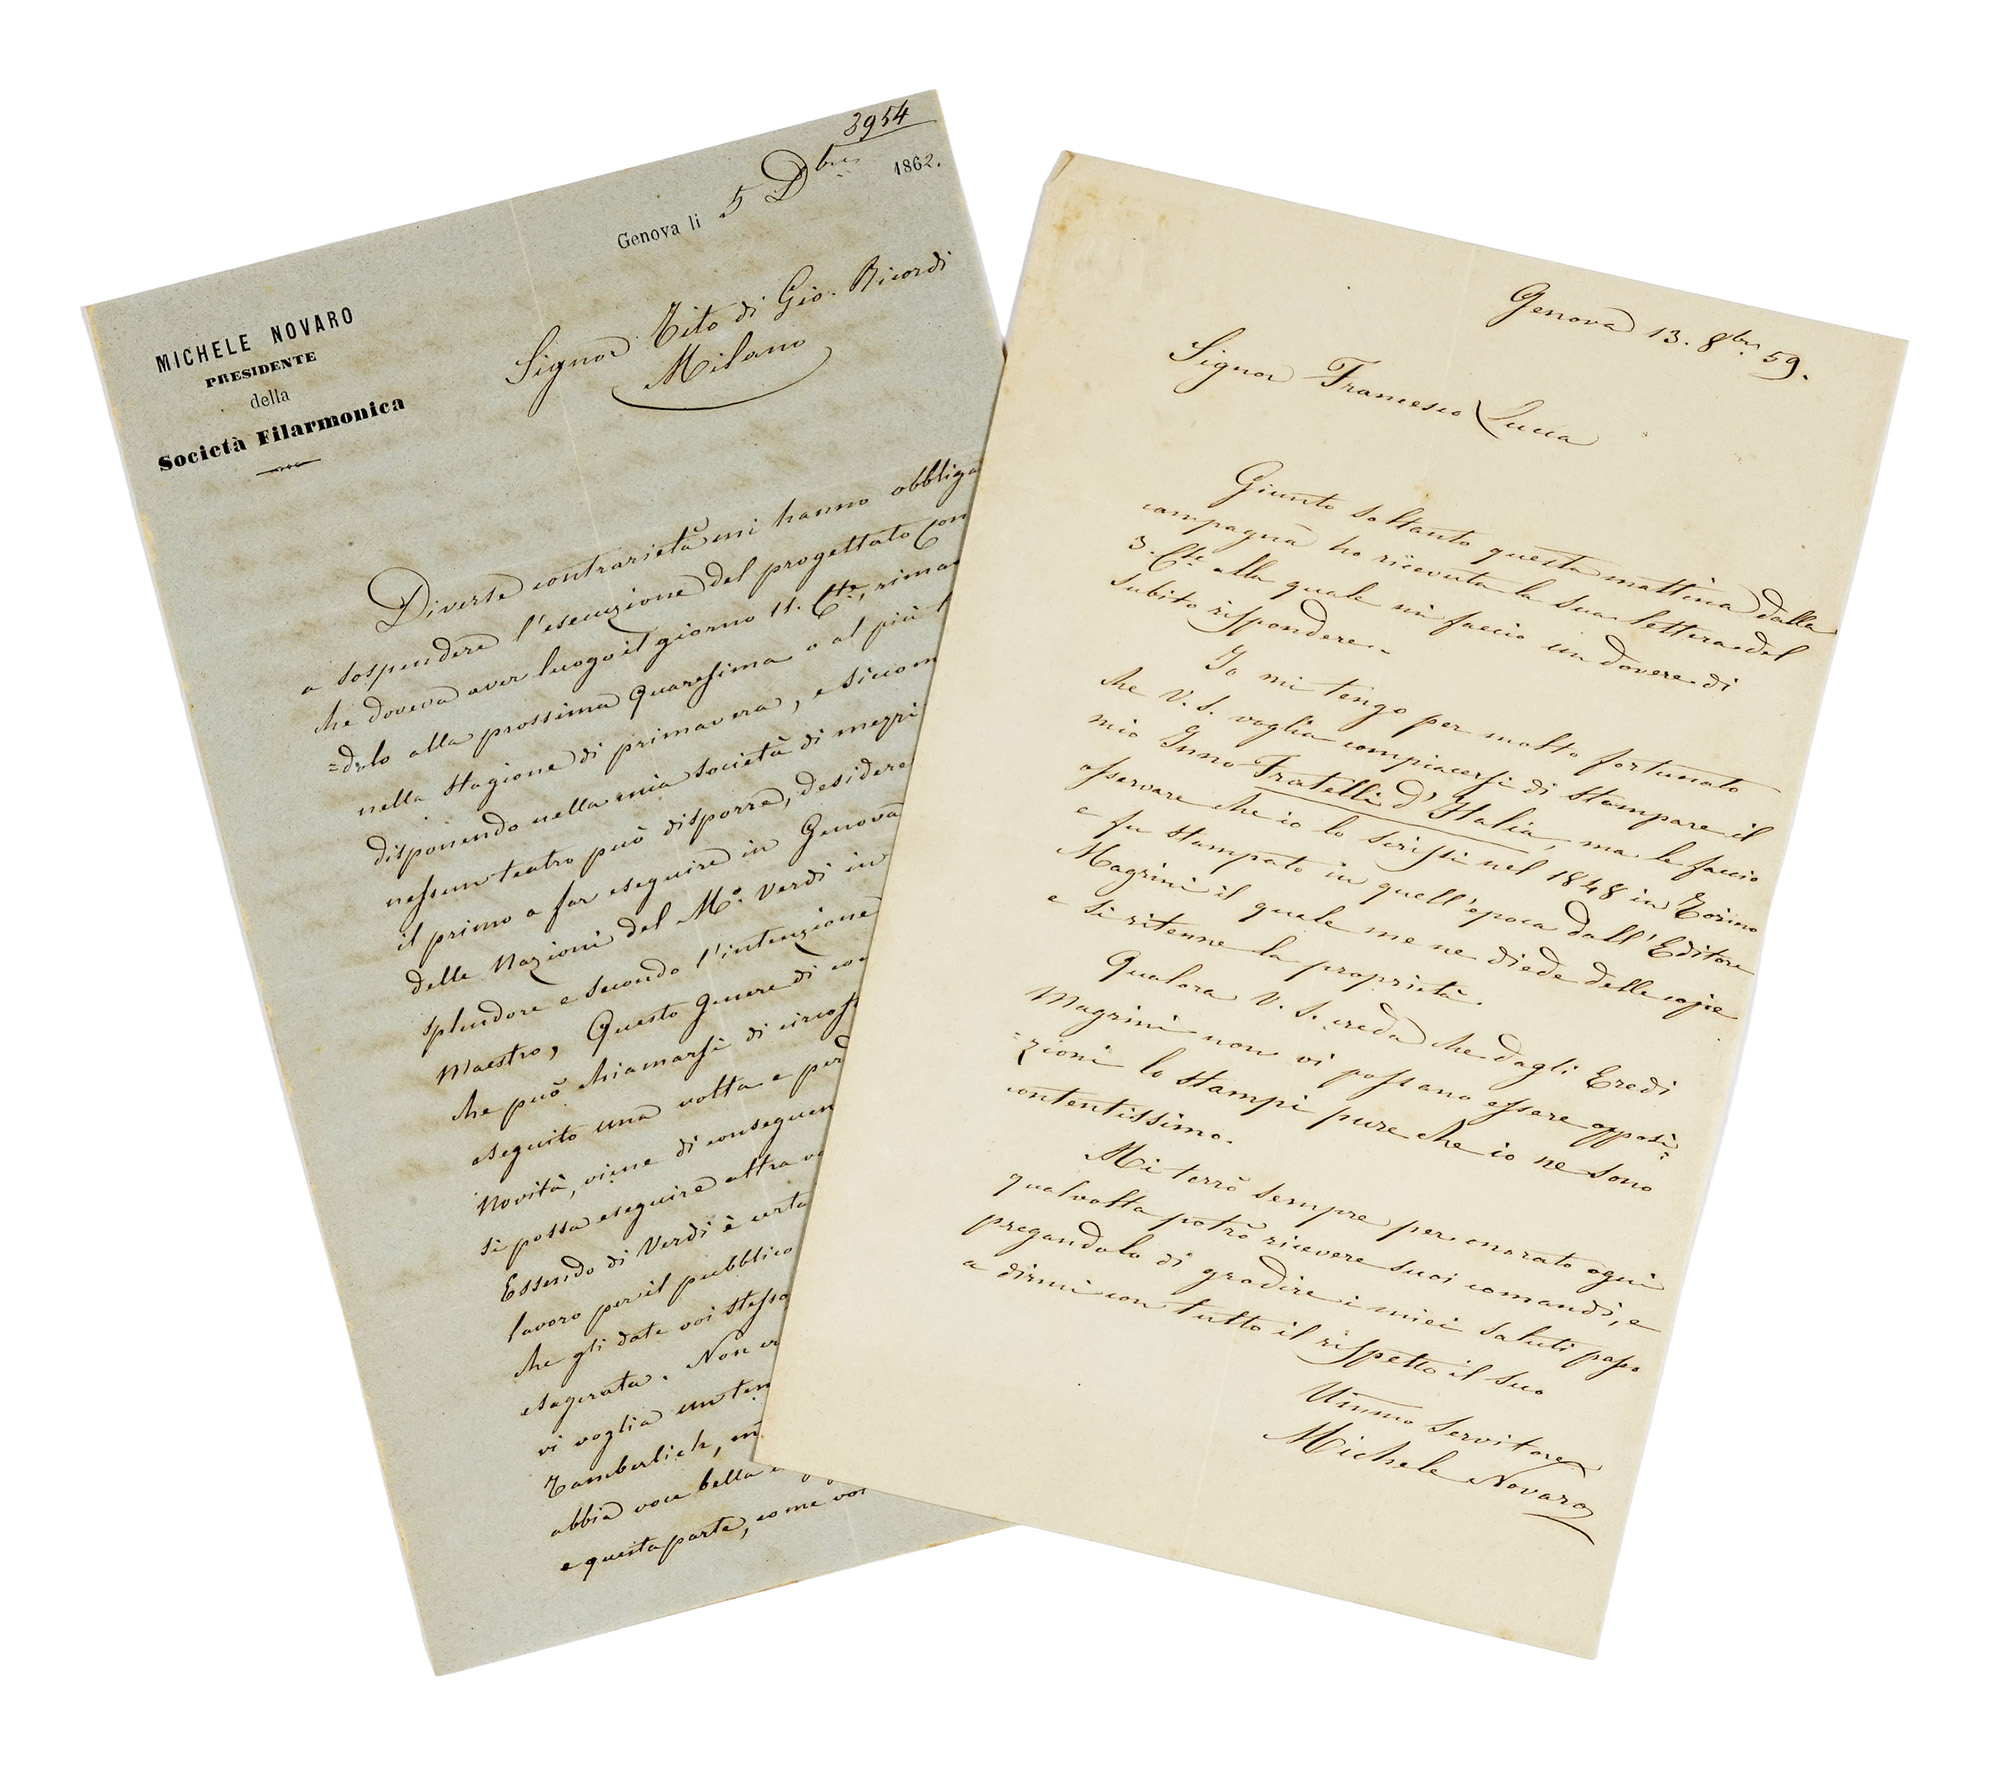 3954
Genova li 5 Dbre 1862.
MICHELE NOVARO
PRESIDENTE
della
Società Filarmonica
Signor Tito di Gio. Ricordi
Milano
Diverse contrarietà mi hanno obbliga
a sospendere l'esecuzione del progettato Con
che doveva aver luogo il giorno 11. Cte, riman
=dolo alla prossima Quaresima o al più t
nella stagione di primavera, e siccom
disponendo nella mia società di mezzi
nessun teatro può disporre, desidere
il primo a far eseguire in Genova
delle Nazioni del Mo. Verdi in
splendore e secondo l'intenzione
Maestro, Questo genere di co
che può chiamarsi di circost
eseguito una volta e perd
Novità, viene di conseguen
si possa eseguire altra vo
Essendo di Verdi è certa
lavoro per il pubblico
che gli date voi stesso
esagerata. Non
vi voglia un ten
Tamberlich, m
abbia voce bella
e questa parte, come voi
Genova 13. 8bre 59.
Signor Francesco Lucca
Giunto soltanto questa mattina dalla
campagna ho ricevuta la sua lettera del
3. Cte alla quale mi faccio un dovere di
subito rispondere.
Io mi tengo per molto fortunato
che V. S. voglia compiacersi di stampare il
mio Inno Fratelli d'Italia, ma le faccio
osservare che io lo scrissi nel 1848 in Torino
e fu stampato in quell'epoca dall'Editore
Magrini il quale me ne diede delle copie
e si ritenne la proprietà.
Qualora V. S. creda che dagli Eredi
Magrini non vi possano essere opposi=
=zioni lo stampi pure che io ne sono
contentissimo.
Mi terrò sempre per onorato ogni
qualvolta potrò ricevere suoi comandi, e
pregandolo di gradire i miei saluti passo
a dirmi con tutto il rispetto il suo
Ummo Servitore
Michele Novaro